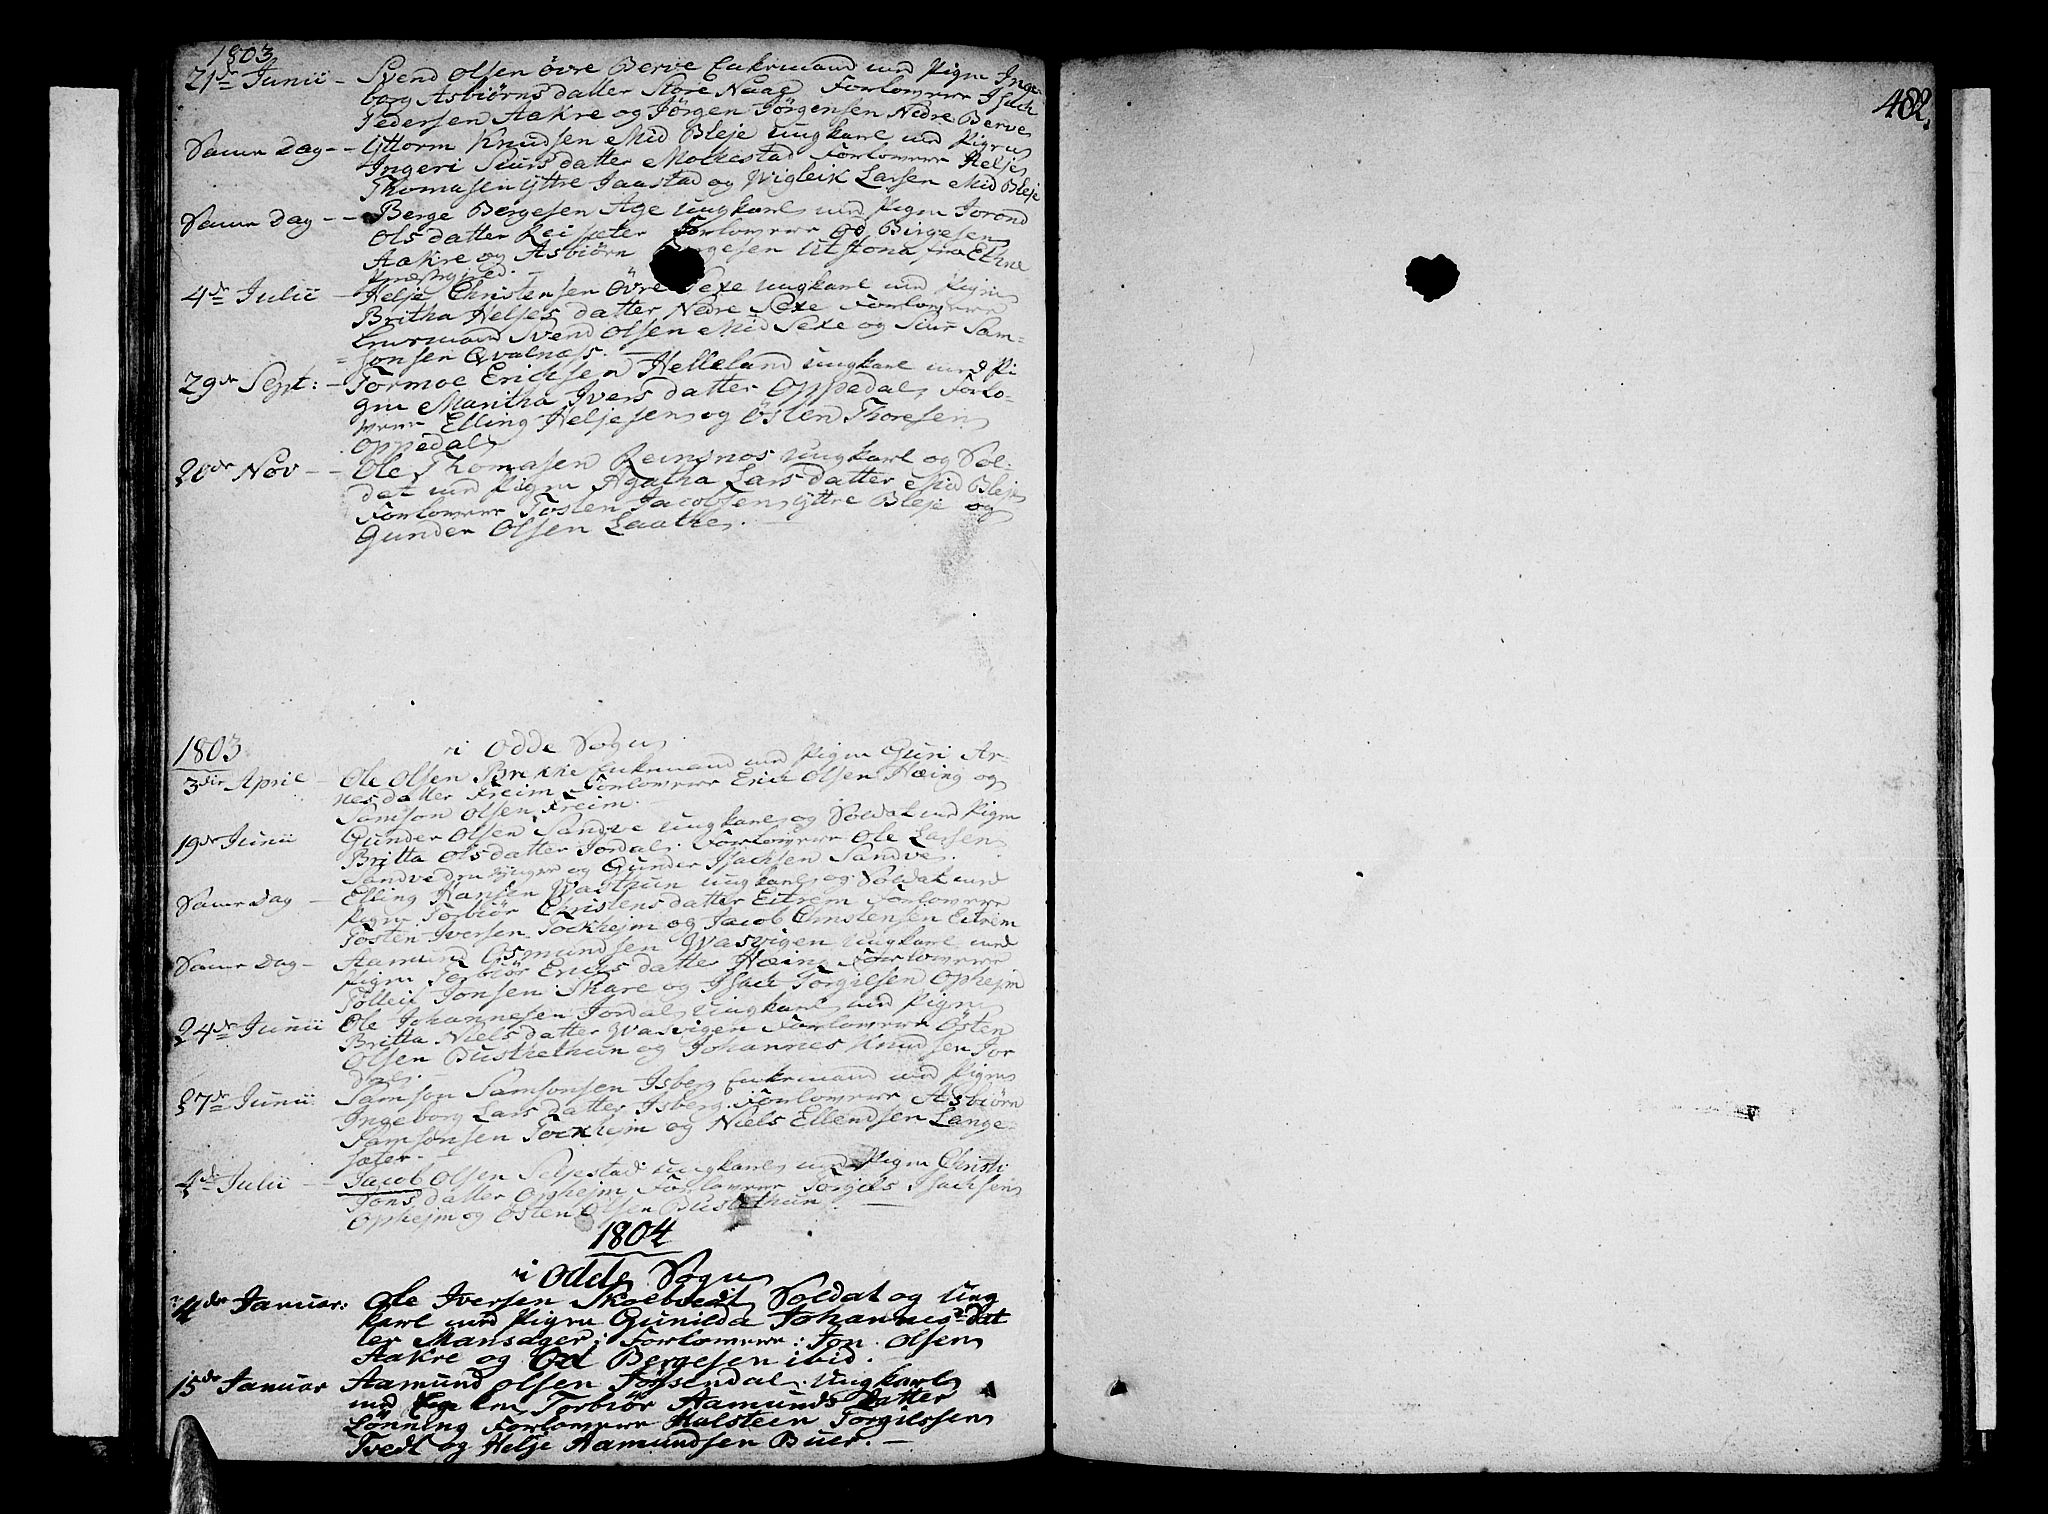 1803
21de Junii - Svend Olsen øvre Berve Enkemand med Pigen Inge-
borg Asbiørnsdatter Store Naag Forlovere Isach
Pedersen Aakre og Jørgen Jørgensen Nedre Berve
Same Dag - - Gttorm Knudsen Mid Bleje Ungkarl med Pigen
Ingeri Siursdatter Molkestad Forlovere Helje
Thomasen Yttre Jaastad og Wigleik Larsen Mid Bleje
Same Dag - - Berge Bergesen Age Ungkarl med Pigen Jorond
Olsdatter Reisæter Forlovere Od Birgesen
Aakre og Asbiørn Utstona fra Ethne
Præstegield.
4de Julii - Helje Christensen Övre Sexe Ungkarl med Pigen
Britha Heljesdatter Nedre Sexe Forlovere
Svend Olsen Mid Sexe og Siur Sam-
sonsen Qvalnæss.
29de Sept: - Tormoe Erichsen Helleland Ungkarl med Pi
gen Maritha Iversdatter Oppedal, Forlo-
vere Elling Heljesen og Østen Thoresen
Oppedal
20de Nov - - Ole Thomasen Reinsnos Ungkarl og Sol-
dat med Pigen Agatha Larsdatter Mid Bleje
Forlovere Tosten Jacobsen Yttre Bleje og
Gunder Olsen Laathe.
1803 i Odde Sogn
3die April - Ole Olsen Brekke Enkemand med Pigen Guri Ar-
nesdatter Freim Forlovere Erich Olsen Hæing og
Samson Olsen Freim.
19de Junii Gunder Olsen Sandve Ungkarl og Soldat med Pigen
Britta Olsdatter Jordal. Forlovere Ole Larsen
Sandve den yngre og Gunder Isachsen Sandve.
Same Dag - Elling Hansen Wasthun Ungkarl og Soldat med
Pigen Torbiør Christensdatter Eitrem Forlovere
Tosten Iversen Tockhejm og Jacob Christensen Eitrem
Same Dag - Aamund Osmundsen Wasvigen Ungkarl med
Pigen Torbiör Erichsdatter Hæing Forlovere
Tölleif Jonsen Skare og Isach Torgilsen Ophejm
24de Junii Ole Johannesen Jordal Ungkarl med Pigen
Britta Nielsdatter Wasvigen Forlovere Østen
Olsen Bustethun og Johannes Knudsen Jor
dal.
27de Junii Samson Samsonsen Isberg Enkemand med Pigen
Ingeborg Larsdatter Isberg. Forlovere Asbiörn
Samsonsen Tockhejm og Niels Ellendsen Lange-
sæter.
4de Julii - Jacob Olsen Seljestad Ungkarl med Pigen Christi
Jonsdatter Ophejm Forlovere Torgils Isachsen
Ophejm og Østen Olsen Bustethun.
1804
i Odde Sogn
4de Januar: Ole Iversen Skoltvedt Soldat og Ung
karl med Pigen Gunilda Johannes=dat
ter Mansager; Forlovere: Jon Olsen
Aakre og Od Bergesen ibid.
15de Januar Aamund Olsen Jøssendal. Ungkarl
med Torbiør Aamundsdatter
Lønning Forlovere Halsteen Torgilssen
Tvedt og Helje Aamundsen Buer. -
482.